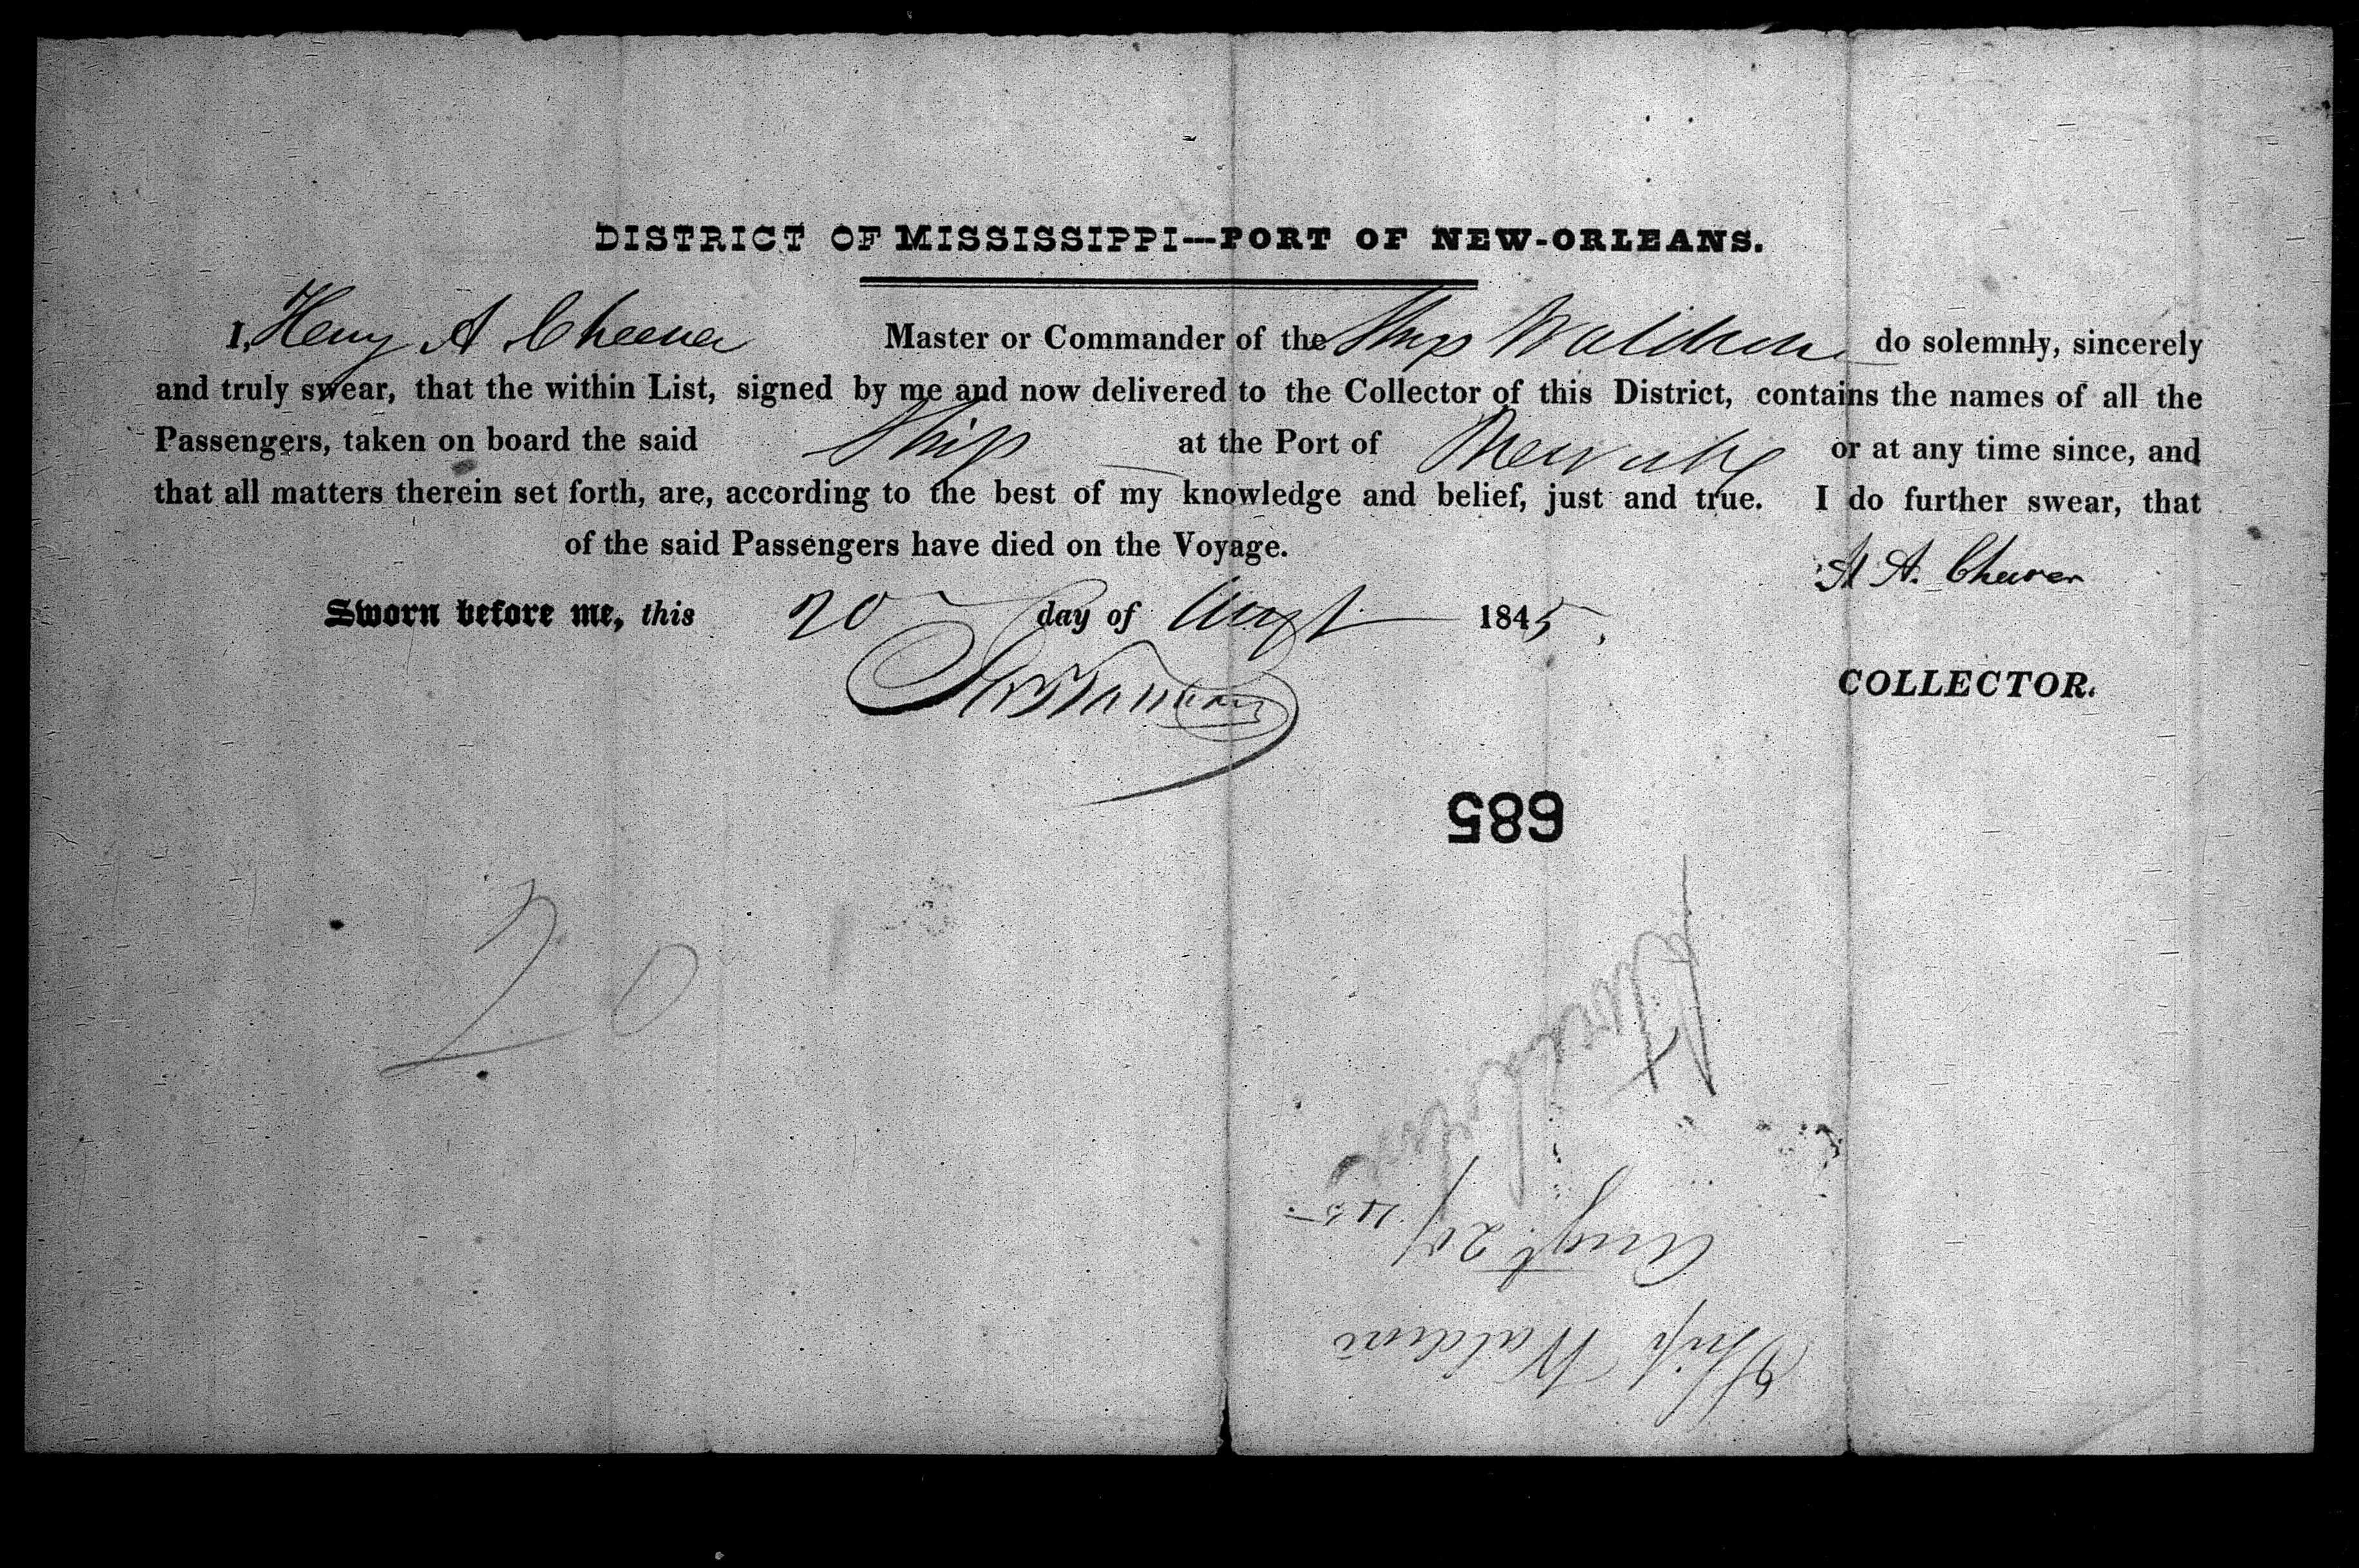 DISTRICT OF MISSISSIPPI---PORT OF NEW-ORLEANS.
I, Henry A Cheever Master or Commander of the Ship Walden do solemnly, sincerely
and truly swear, that the within List, signed by me and now delivered to the Collector of this District, contains the names of all the
Passengers, taken on board the said Ship at the Port of New or at any time since, and
that all matters therein set forth, are, according to the best of my knowledge and belief, just and true. I do further swear, that
of the said Passengers have died on the Voyage.
H A. Cheever
Sworn before me, this 20 day of Augt 1845,
COLLECTOR.
685
20
Augt 20/45
Ship Walden